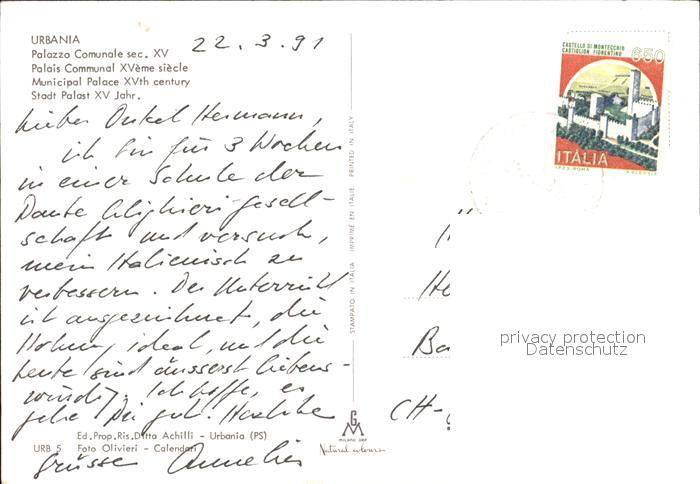 URBANIA
Palazzo Comunale sec. XV
Palais Communal XVème siècle
Municipal Palace XVth century
Stadt Palast XV Jahr.
22.3.91
Lieber Onkel Hermann,
ich bin für 3 Wochen
in einer Schule der
Dante Alighieri-gesell-
schaft und versuch,
mein Italienisch zu
verbessern. Der Unterricht
ist ausgezeichnet, die
Wohnung ideal, und die
Leute sind äusserst liebens-
würdig. Ich hoffe, es
gehe Dir gut. Herzliche
Grüsse Annelies
Ed. Prop. Ris. Ditta Achilli - Urbania (PS)
URB 5 Foto Olivieri - Calendari
STAMPATO IN ITALIA IMPRIMÉ EN ITALIE PRINTED IN ITALY
GM
Natural colours
CASTELLO DI MONTECCHIO
CASTIGLION FIORENTINO
650
ITALIA
He
Ba
CH-
privacy protection
Datenschutz